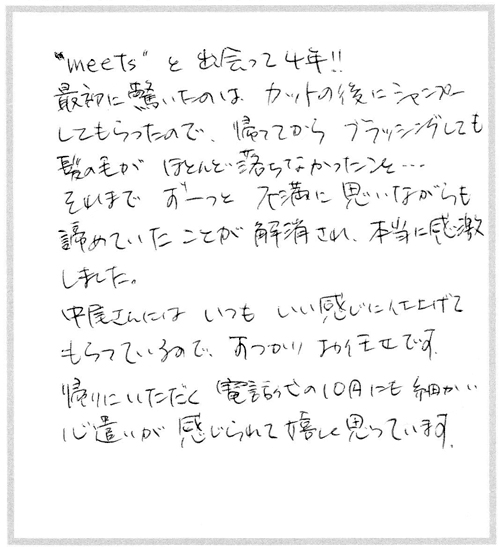 "meets" と 出会って 4年!!
最初に驚いたのは カットの後にシャンプー
してもらったので、帰ってから ブラッシングしても
髪の毛が ほとんど落ちなかったこと…
それまで ずーっと 不満に思いながらも
諦めていたことが解消され、本当に感激
しました。
中尾さんには いつも いい感じに仕上げて
もらっているので、すっかり お任せです。
帰りにいただく 電話代の10円にも 細かい
心遣いが 感じられて嬉しく思っています。